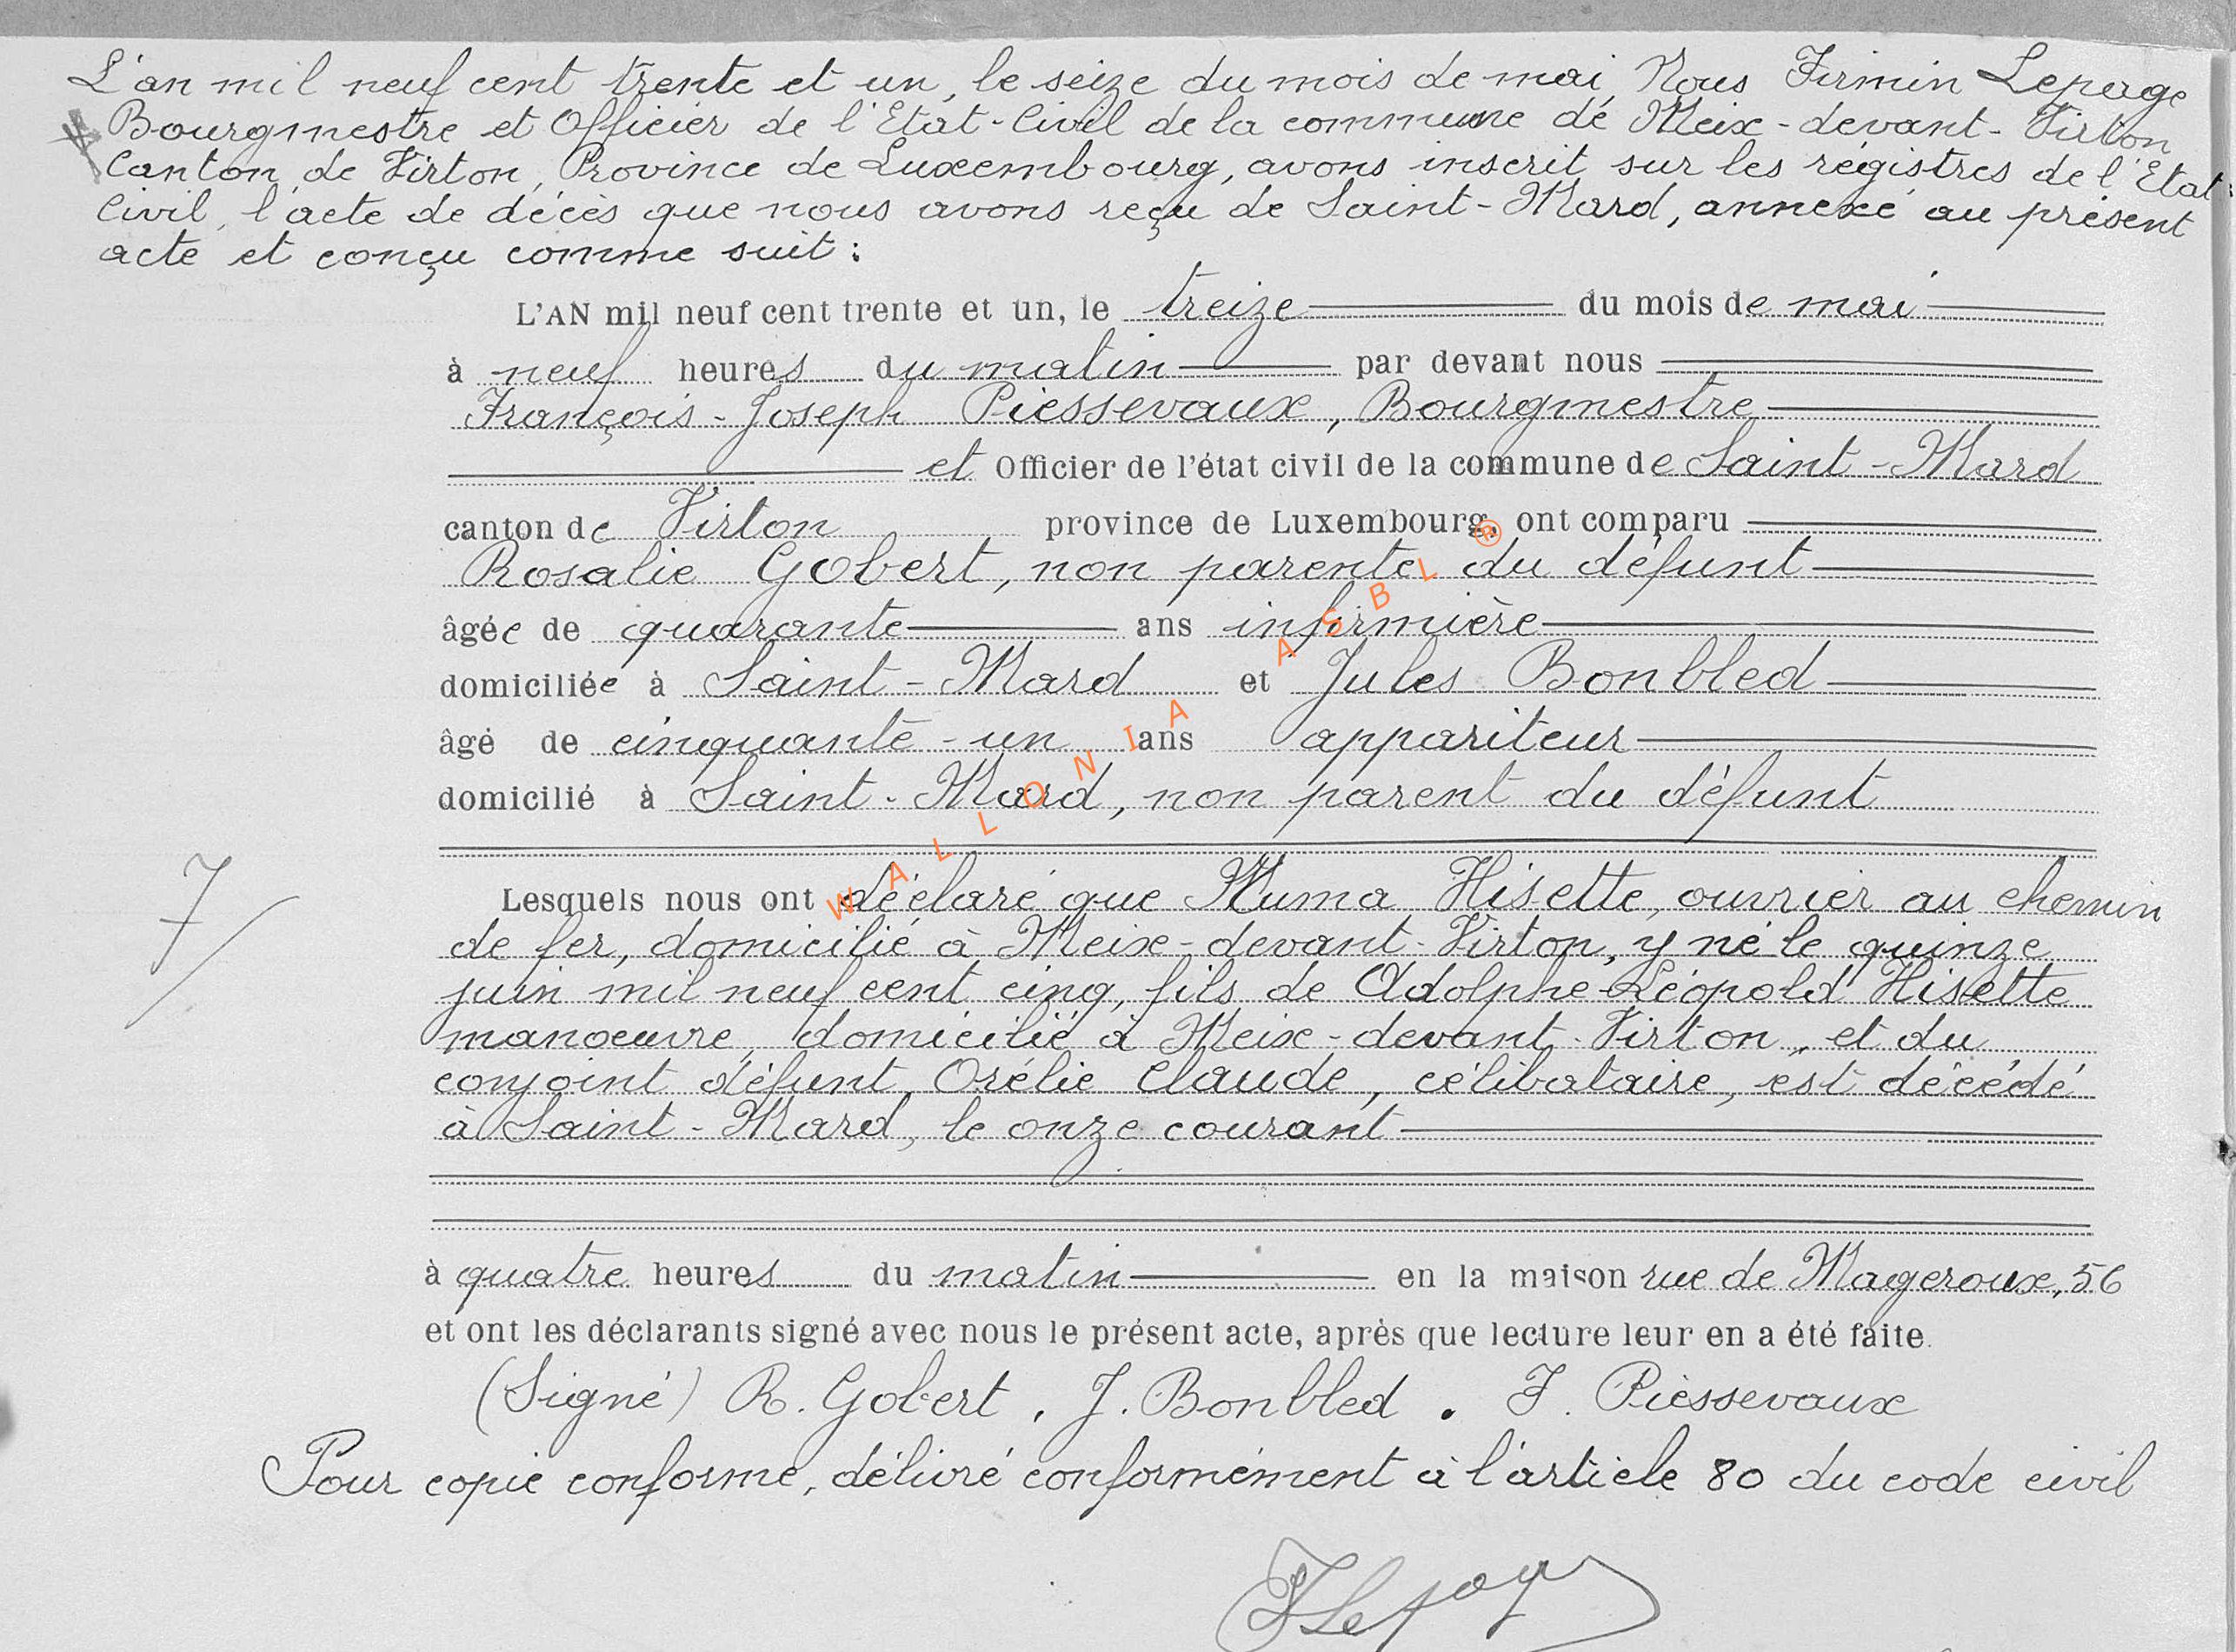 L'an mil neuf cent trente et un, le seize du mois de mai, Nous Firmin Lepage
Bourgmestre et Officier de l'Etat-Civil de la commune de Meix-devant-Virton
Canton de Virton, Province de Luxembourg, avons inscrit sur les régistres de l'Etat-
Civil, l'acte de décès que nous avons reçu de Saint-Mard, annexé au présent
acte et conçu comme suit :
L'AN mil neuf cent trente et un, le treize du mois de mai
à neuf heures du matin par devant nous
François-Joseph Piessevaux, Bourgmestre
et Officier de l'état civil de la commune de Saint-Mard
canton de Virton province de Luxembourg, ont comparu
Rosalie Gobert, non parente du défunt
âgée de quarante ans infirmière
domiciliée à Saint-Mard et Jules Bonbled
âgé de cinquante-un ans appariteur
domicilié à Saint-Mard, non parent du défunt
7
Lesquels nous ont déclaré que Numa Hisette, ouvrier au chemin
de fer, domicilié à Meix-devant-Virton, y né le quinze
juin mil neuf cent cinq, fils de Adolphe-Léopold Hisette
manoeuvre, domicilié à Meix-devant-Virton, et du
conjoint défunt, Orélie Claude, célibataire, est décédé
à Saint-Mard, le onze courant
à quatre heures du matin en la maison rue de Mageroux, 56
et ont les déclarants signé avec nous le présent acte, après que lecture leur en a été faite.
(Signé) R. Gobert, J. Bonbled. F. Piessevaux
Pour copie conforme, délivré conformément à l'article 80 du code civil
FLepage
WALLONIA ASBL ®